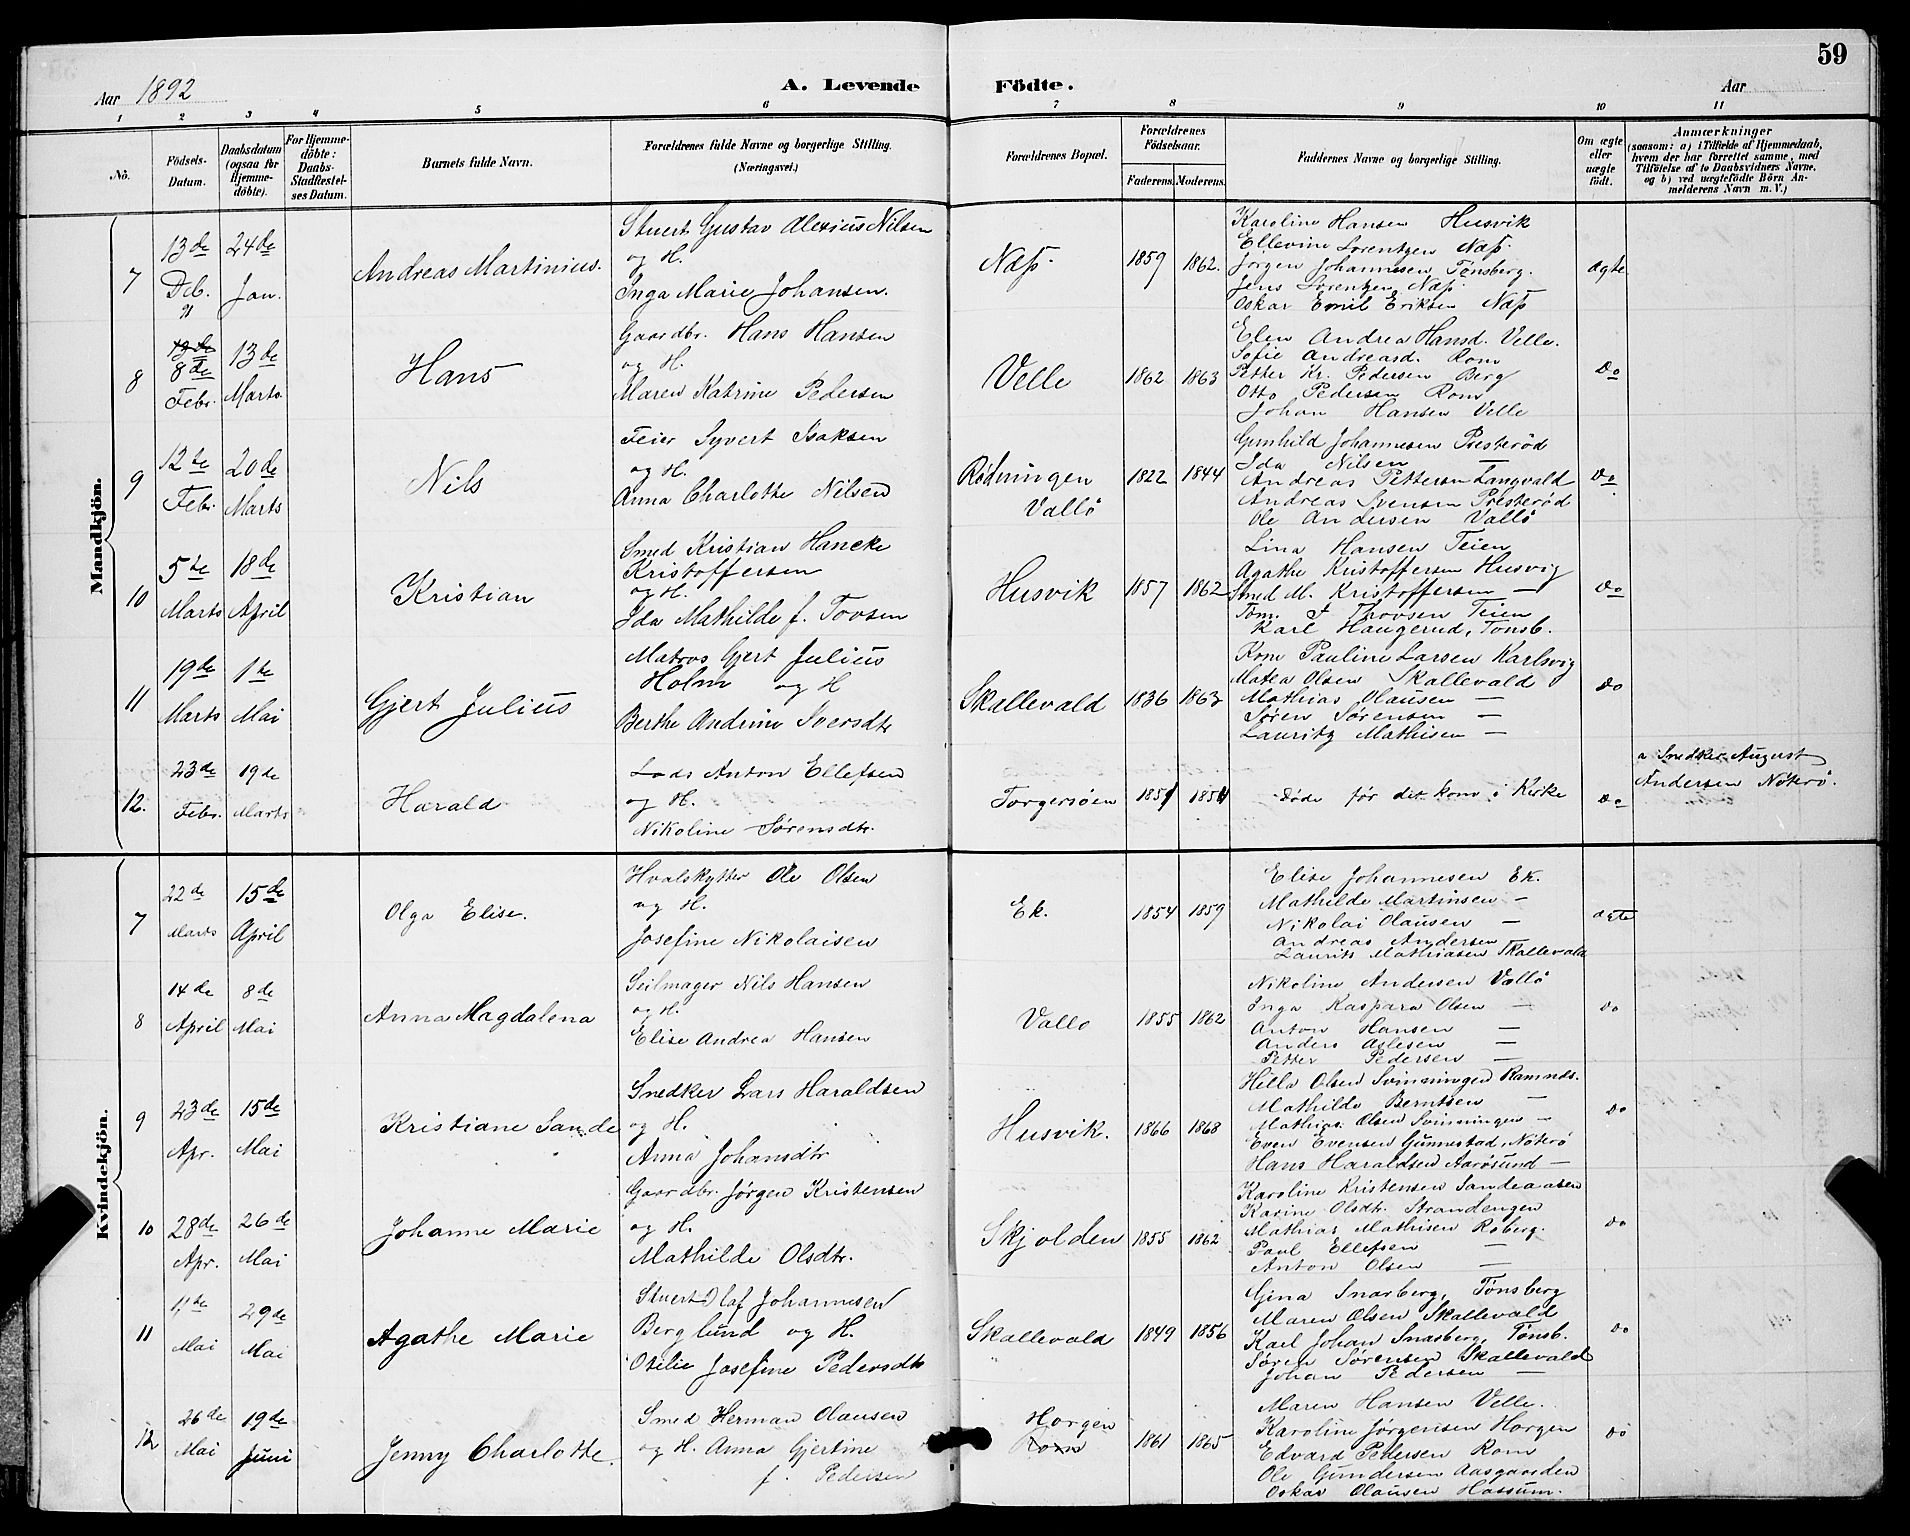 59
Aar 1892
A. Levende Födte.
Aar
1 2 3 4 5 6 7 8 9 10 11
No.
Födsels-Datum.
Daabsdatum (ogsaa för Hjemme-döbte).
For Hjemme-döbte: Daabs-Stadfæstel-ses Datum.
Barnets fulde Navn.
Forældrenes fulde Navne og borgerlige Stilling. (Næringsvei.)
Forældrenes Bopæl.
Forældrenes Födselsaar.
Faderens. Moderens.
Faddernes Navne og borgerlige Stilling.
Om ægte eller uægte födt.
Anmærkninger
(saasom: a) i Tilfælde af Hjemmedaab, hvem der har forrettet samme, med Tilföielse af to Daabsvidners Navne, og b) ved uægtefödte Börn An-melderens Navn m. V.)
Mandkjön.
7
13de Deb. 91
24de Jan.
Andreas Martinius.
Stuert Gustav Alexius Nilsen
og H.
Inga Marie Johansen.
Næss.
1859 1862.
Karoline Hansen Husvik
Ellevine Lorentzen Næss.
Jörgen Johannesen Tönsberg.
Jens Lorentzen Næss.
Oskar Emil Eriksen Næss
ægte
8
13de
8de Febr.
13de Marts.
Hans
Gaardbr. Hans Hansen
og H.
Maren Katrine Pedersen
Velle
1862 1863
Elen Andrea Hansd. Velle.
Sofie Andreasd. Rom
Petter Kr. Pedersen Berg
Otto Pedersen Rom
Johan Hansen Velle
Do
9
12te Febr.
20de Marts
Nils
Feier Syvert Isaksen
og H.
Anna Charlotte Nilsen
Rödningen
Vallö
1822 1844
Gunhild Johannesen Presteröd
Ida Nilsen —
Andreas Pettersen Langvald
Andreas Svensen Presteröd
Ole Andersen Vallö
Do
10
5te Marts
18de April
Kristian
Smed Kristian Hancke
Kristoffersen
og H.
Ida Mathilde f. Tovsen
Husvik
1857 1862
Lina Hansen Teien
Agathe Kristoffersen Husvig
Smed M. Kristoffersen —
Tom. F Thovsen Teien
Karl Haugerud, Tönsb.
Do
11
19de Marts
1te Mai
Gjert Julius
Matros Gjert Julius
Holm og H
Berthe Andrine Iversdtr
Skallevald
1836 1863
Kone Pauline Larsen Karlsvig
Matea Olsen Skallevald
Mathias Olausen —
Sören Sörensen —
Lauritz Mathisen —
Do
12.
23de Febr.
19de Marts
Harald
Lods Anton Ellefsen
og H.
Nikoline Sörensdtr.
Torgersöen
1851 1854
Döde för det kom i Kirke
Do
a Snedker August
Andersen Nöterö.
Kvindekjön.
7
22de Marts
15de April
Olga Elise.
Hvalskytter Ole Olsen
og H.
Josefine Nikolaisen
Ek.
1854 1859
Elise Johannesen Ek.
Mathilde Martinsen —
Nikolai Olausen —
Andreas Andersen —
Laurits Mathiasen Skallevald
ægte
8
14de April
8de Mai
Anna Magdalena
Seilmager Nils Hansen
og H.
Elise Andrea Hansen
Vallo
1855 1862
Nikoline Andersen Vallö
Inga Kaspara Olsen —
Anton Hansen —
Anders Aslesen —
Petter Pedersen —
do
9
23de Apr.
15de Mai
Kristiane Sande
Snedker Lars Haraldsen
og H.
Anna Johansdtr
Husvik.
1866 1868
Hilla Olsen Svinningen Ramnds.
Mathilde Berntsen —
Mathias Olsen Svinningen —
Even Evensen Gunnestad, Nöterö
Hans Haraldsen Aarösund —
Do
10
28de Apr.
26de Mai
Johanne Marie
Gaardbr. Jörgen Kristensen
og H.
Mathilde Olsdtr.
Skjolden
1855 1862
Karoline Kristensen Sandeaasen
Karine Olsdtr. Strandengen
Mathias Mathisen Roberg.
Paul Ellefsen —
Anton Olsen —
do
11
11te Mai
29de Mai
Agathe Marie
Stuert Olaf Johannesen
Berglund og H.
Otilie Josefine Pedersdtr
Skallevald
1849 1856
Gina Snarberg, Tönsberg
Maren Olsen Skallevald
Karl Johan Snarberg, Tönsb.
Sören Sörensen Skallevald
Johan Pedersen —
do
12
26de Mai
19de Juni
Jenny Charlotte.
Smed Herman Olausen
og H. Anna Gjertine
f. Pedersen
Horgen
Rom
1861 1865
Maren Hansen Velle.
Karoline Jörgensen Horgen
Edvard Pedersen Rom
Ole Gundersen Aasgaarden
Oskar Olausen Hassum.
do